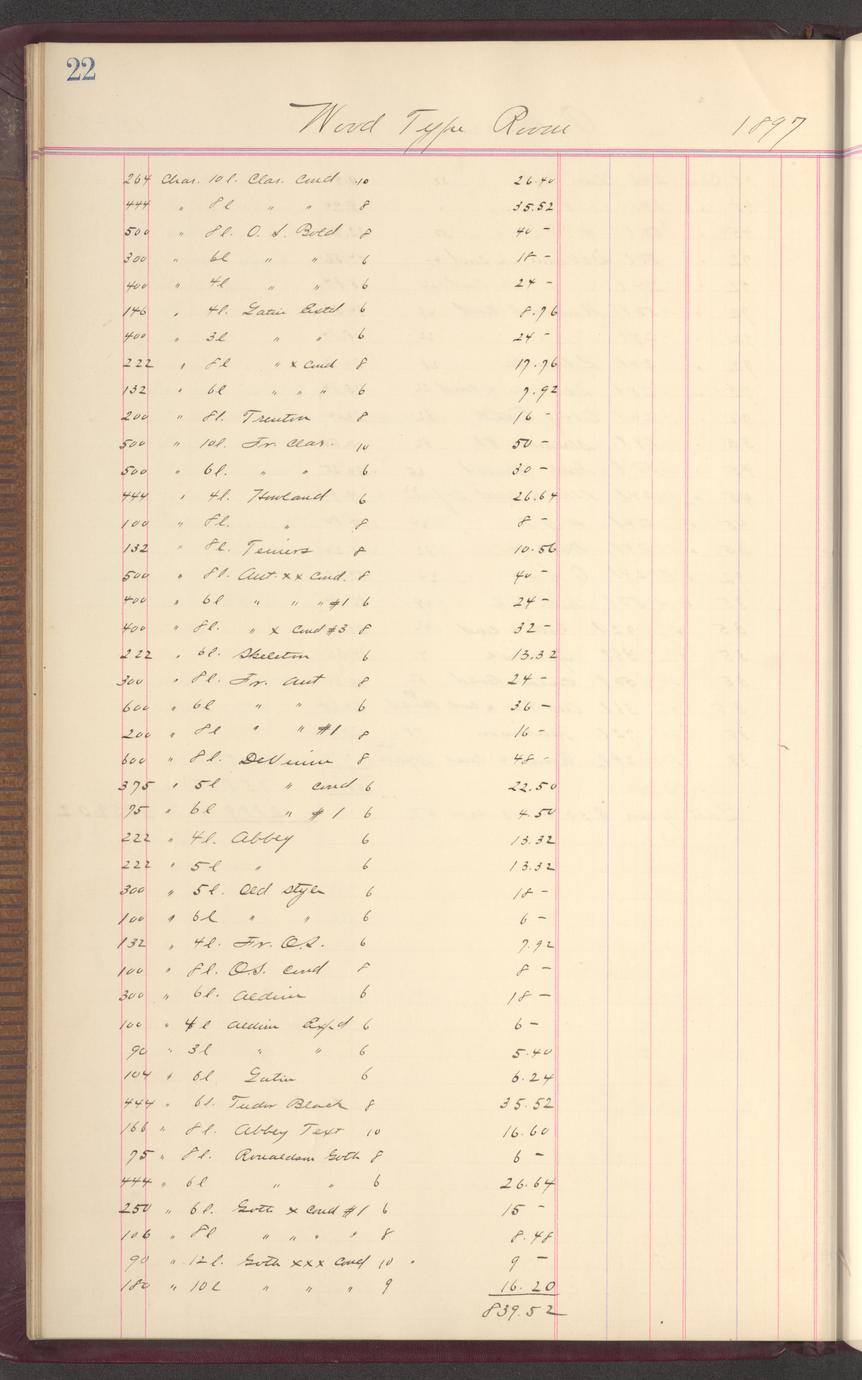 22
Wood Type Room 1897
264 Char. 10l. Clar. Cond 10 26.40
444 " 8l " " 8 35.52
500 " 8l. O. S. Bold 8 40 -
300 " 6l " " 6 18 -
400 " 4l " " 6 24 -
146 " 4l. Latin 6 8.76
400 " 3l " " 6 24 -
222 " 8l " x Cond 8 17.76
132 " 6l " " " 6 7.92
200 " 8l. Trenton 8 16 -
500 " 10l. Fr. Clar. 10 50 -
500 " 6l. " " 6 30 -
444 " 4l. Howland 6 26.64
100 " 8l. " 8 8 -
132 " 8l. Teniers 8 10.56
500 " 8l. Ant. xx Cond. 8 40 -
400 " 6l " " " #1 6 24 -
400 " 8l. " x Cond #3 8 32 -
222 " 6l. Skeleton 6 13.32
300 " 8l. Fr. Ant 8 24 -
600 " 6l " " 6 36 -
200 " 8l " " #1 8 16 -
600 " 8l. DeVinne 8 48 -
375 " 5l " Cond 6 22.50
75 " 6l " #1 6 4.50
222 " 4l. Abbey 6 13.32
222 " 5l " 6 13.32
300 " 5l. Old Style 6 18 -
100 " 6l " " 6 6 -
132 " 4l. Fr. O.S. 6 7.92
100 " 8l. O.S. Cond 8 8 -
300 " 6l. Aldine 6 18 -
100 " 4l Aldine Exp'd 6 6 -
90 " 3l " " 6 5.40
104 " 6l Latin 6 6.24
444 " 6l. Tudor Black 8 35.52
166 " 8l. Abbey Text 10 16.60
75 " 8l. Ronaldson Goth 8 6 -
444 " 6l " " 6 26.64
250 " 6l. Goth x Cond #1 6 15 -
106 " 8l " " " " 8 8.48
90 " 12l. Goth xxx Cond 10 9 -
180 " 10l " " " 9 16.20
839.52